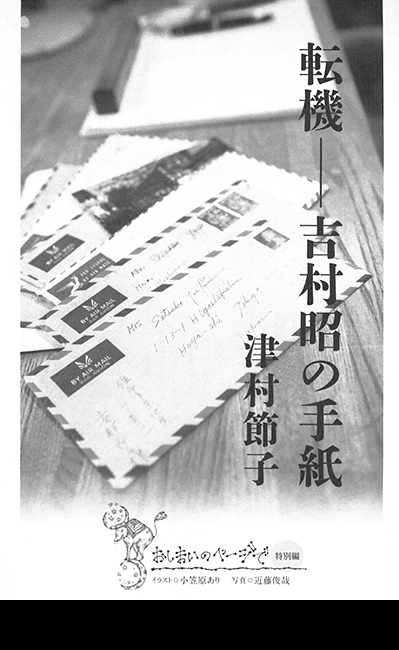 転機――吉村昭の手紙
津村節子
BY AIR MAIL
BY AIR MAIL
BY AIR MAIL
Mrs. Setsuko
1-13-1
Tokyo
おしまいのページで 特別編
イラスト○小笠原あり 写真○近藤俊哉